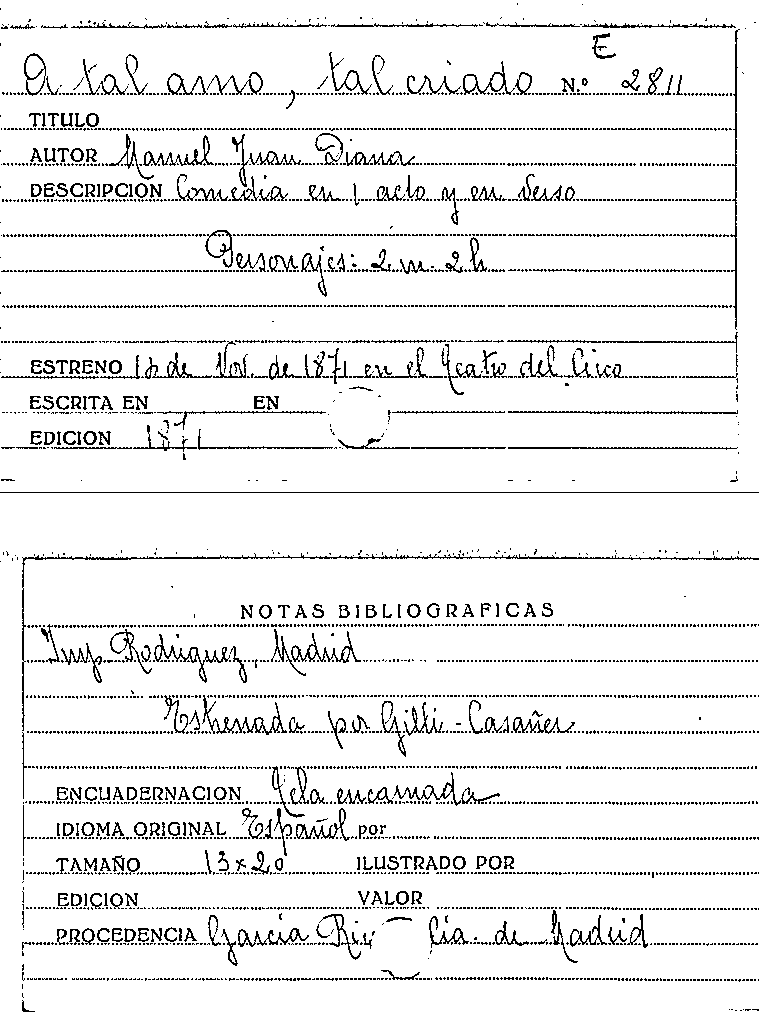 E
A tal amo, tal criado N.º 2811
TITULO
AUTOR Manuel Juan Diana
DESCRIPCION Comedia en 1 acto y en verso
Personajes: 2 m. 2 h
ESTRENO de Nov. de 1871 en el Teatro del Circo
ESCRITA EN EN
EDICION 1871
NOTAS BIBLIOGRAFICAS
Imp Rodriguez, Madrid
Estrenada por Gilli - Casañer
ENCUADERNACION Tela encarnada
IDIOMA ORIGINAL Español por
TAMAÑO 13 x 20 ILUSTRADO POR
EDICION VALOR
PROCEDENCIA García Cía. de Madrid